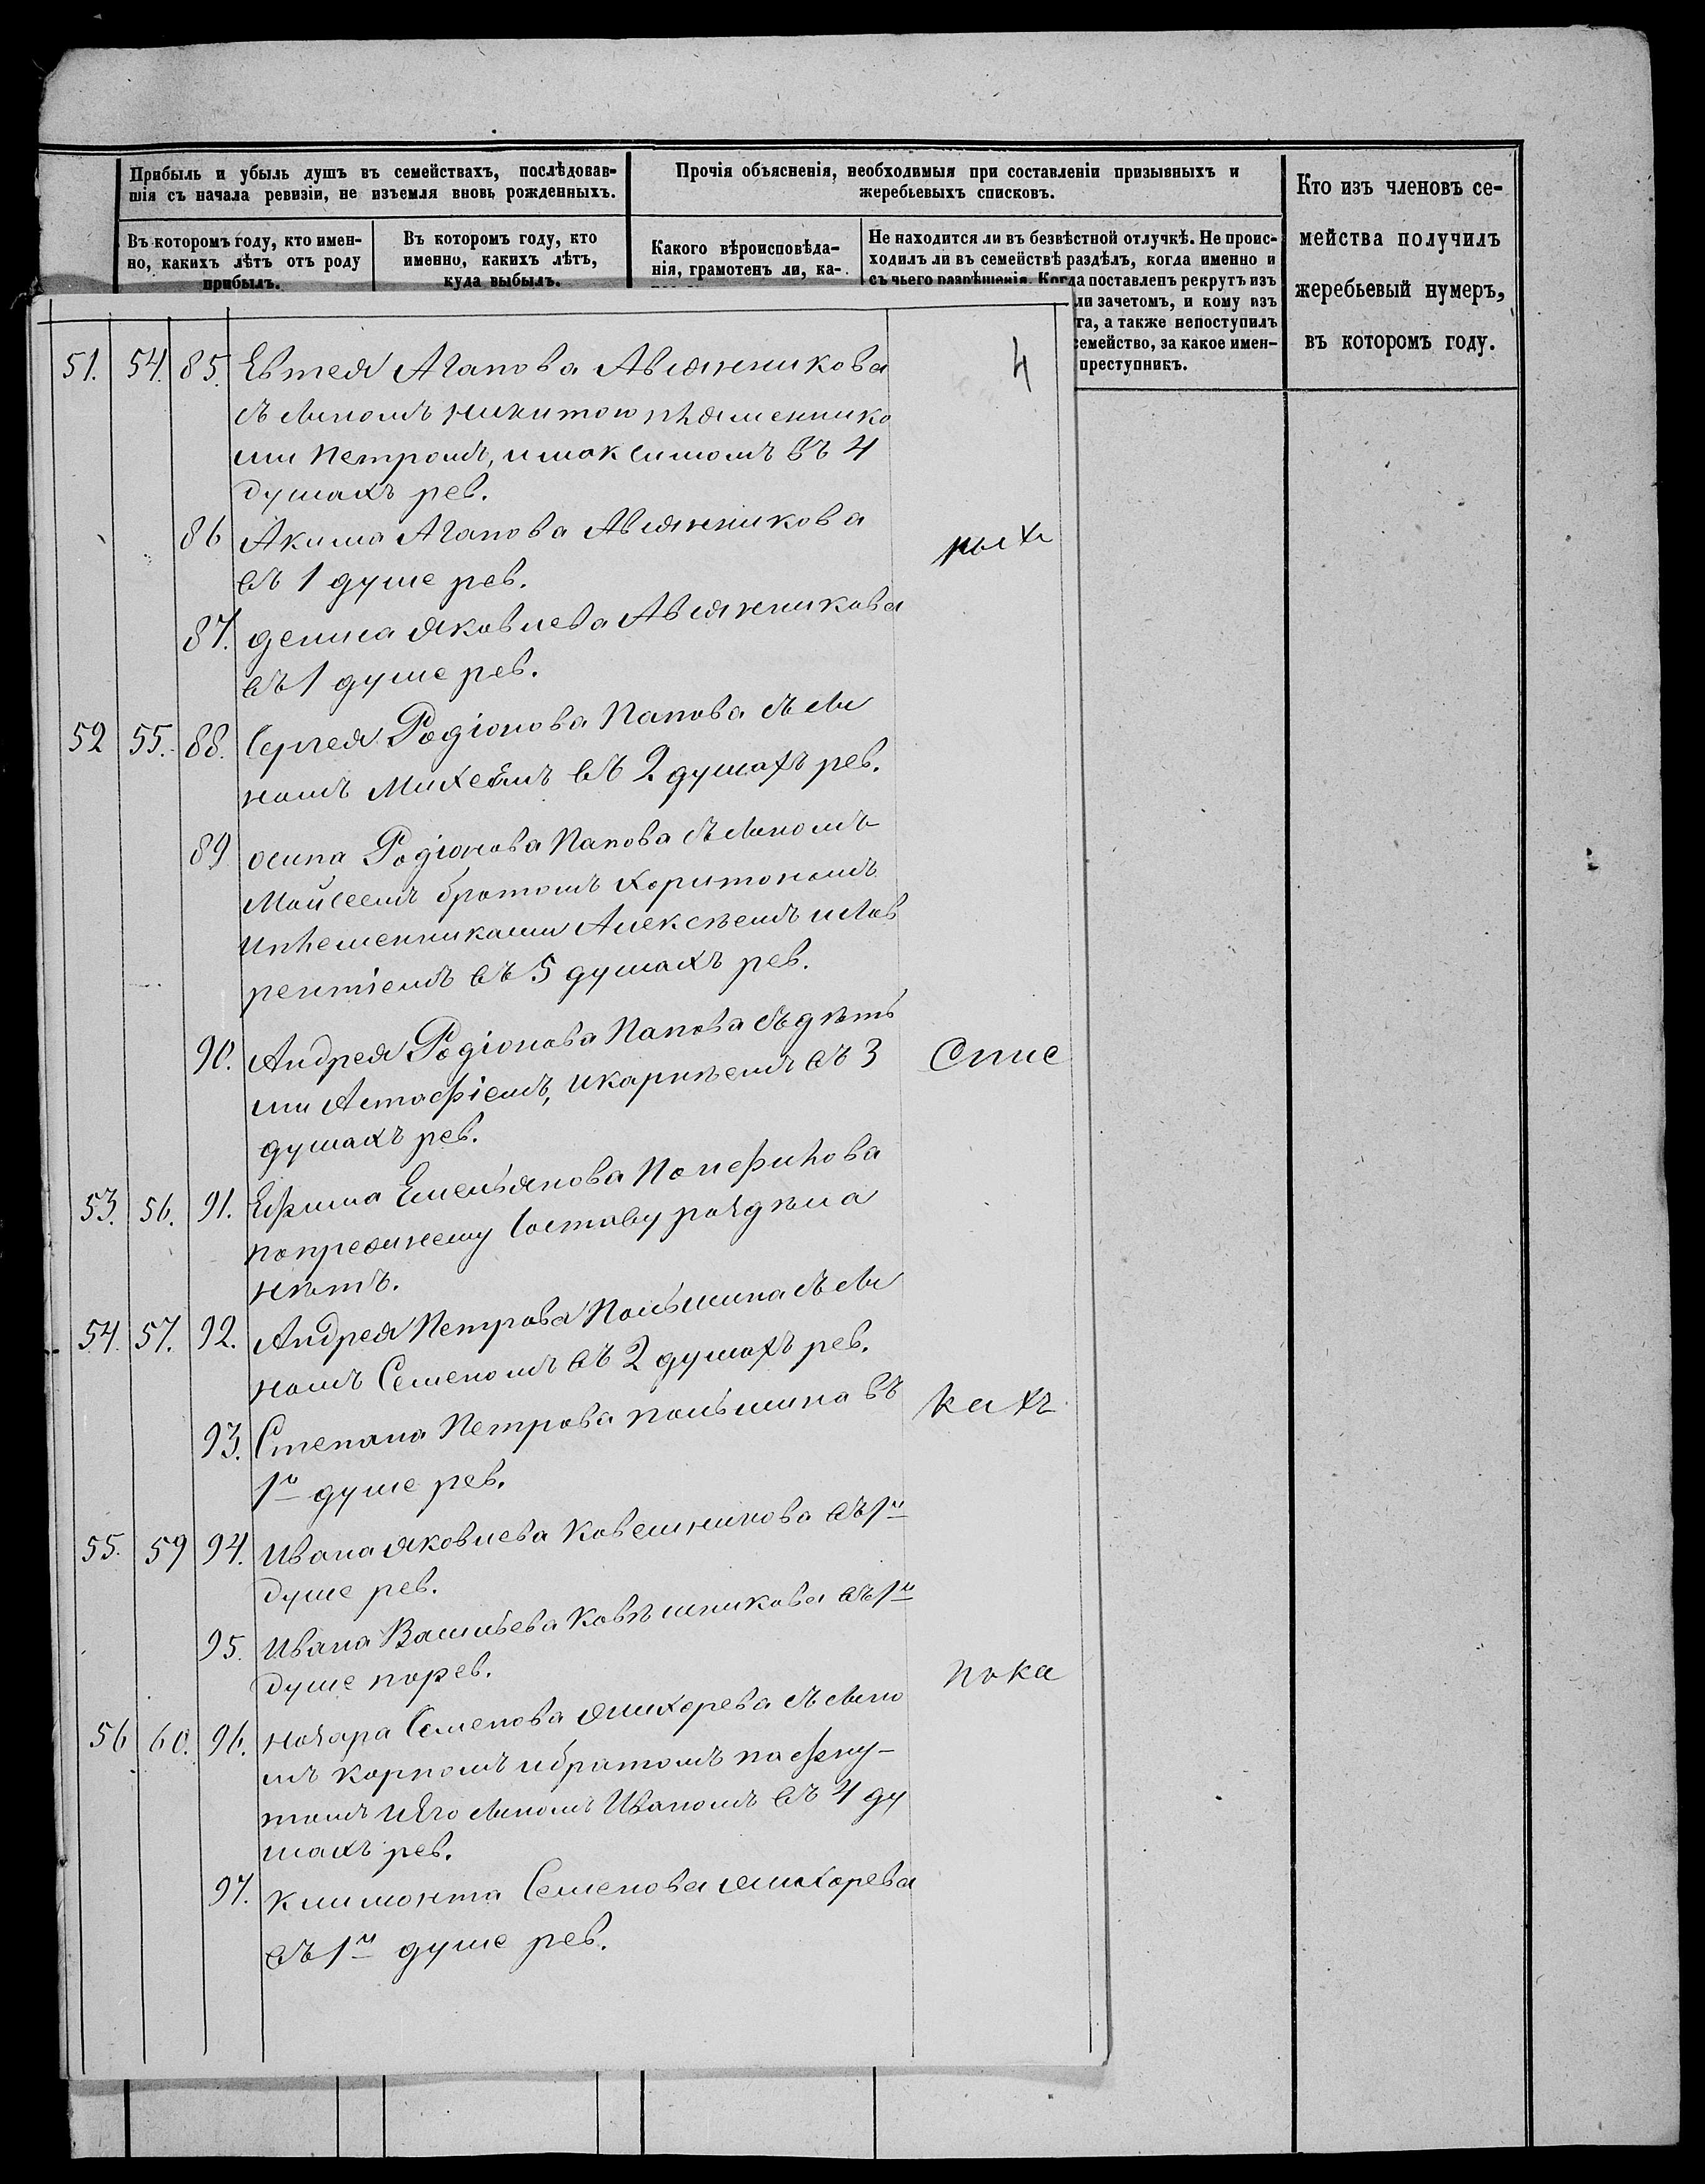 Прибыль и убыль душъ въ семействахъ, послѣдовав-
шія съ начала ревизіи, не изъемля вновь рожденныхъ.
Въ которомъ году, кто имен-
но, какихъ лѣтъ отъ роду
прибылъ.
Въ которомъ году, кто
именно, какихъ лѣтъ,
куда выбылъ.
Прочія объясненія, необходимыя при составленіи призывныхъ и
жеребьевыхъ списковъ.
Какого вѣроисповѣда-
нія, грамотенъ ли, ка-
Не находится ли въ безвѣстной отлучкѣ. Не проис-
ходилъ ли въ семействѣ раздѣлъ, когда именно и
съ чьего разрѣшенія. Когда поставленъ рекрутъ изъ
ли зачетомъ, и кому изъ
га, а также непоступилъ
семейство, за какое имен-
преступникъ.
Кто изъ членовъ се-
мейства получилъ
жеребьевый нумеръ,
въ которомъ году.
51. 54. 85. Евтея Агапова Овсянникова 4
съ сыномъ никитою племеннико
ми Петромъ, имаксимомъ въ 4
душахъ рев.
86 Акима Агапова Овсянникова
въ 1 душе рев.
87. дениса яковлева Овсянникова
въ 1 душе рев.
52 55. 88. Сергея Родіонова Папова съ сы
номъ Михеемъ въ 2 душахъ рев.
89 осипа Родіонова Папова съ сыномъ
Мойсеемъ братомъ харитономъ
Иплеменниками Алексѣемъ илав
рентіемъ въ 5 душахъ рев.
90. Андрея Родіонова Папова съ дѣть Спис
ми Астафіемъ, икарпѣемъ въ 3
душахъ рев.
53. 56. 91. Ефима Емельянова
попрежнему Составу раздѣла
нѣтъ.
54. 57. 92. Андрея Петрова Поньшина съ сы
номъ Семеномъ въ 2 душахъ рев.
93. Степана Петрова поньшина въ кахъ
1й душе рев.
55. 59 94. Ивана яковлева Ковешникова въ 1й
душе рев.
95. Ивана Васильева Ковѣшникова въ 1й
душе порев. пока
56 60. 96. назара Семенова съ сыно
мъ карпомъ ибратомъ пафну-
томъ иЕго сыномъ Иваномъ въ 4 ду
шахъ рев.
97. климонта Семенова
въ 1й душе рев.